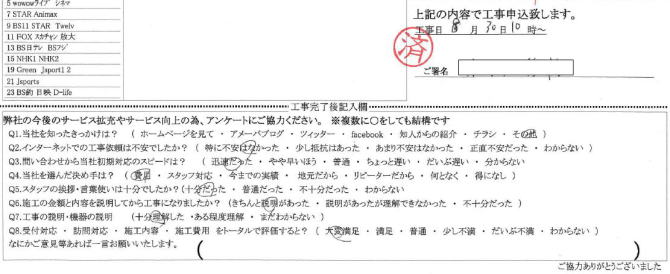 5 wowowライブ シネマ
7 STAR Animax
9 BS11 STAR Twelv
11 FOX スカチャン 放大
13 BS日テレ BSフジ
15 NHK1 NHK2
19 Green Jsport1 2
21 Jsports
23 BS釣 日映 D-life
上記の内容で工事申込致します。
工事日 8 月 30 日 10 時～
済
ご署名
工事完了後記入欄
弊社の今後のサービス拡充やサービス向上の為、アンケートにご協力ください。 ※複数に○をしても結構です
Q1.当社を知ったきっかけは？ （ ホームページを見て ・ アメーバブログ ・ ツィッター ・ facebook ・ 知人からの紹介 ・ チラシ ・ その他 ）
Q2.インターネットでの工事依頼は不安でしたか？ （ 特に不安はなかった ・ 少し抵抗はあった ・ あまり不安はなかった ・ 正直不安だった ・ わからない ）
Q3.問い合わせから当社初期対応のスピードは？ （ 迅速だった ・ やや早いほう ・ 普通 ・ ちょっと遅い ・ だいぶ遅い ・ 分からない
Q4.当社を選んだ決め手は？ （ 費用 ・ スタッフ対応 ・ 今までの実績 ・ 地元だから ・ リピーターだから ・ 何となく ・ 得になし ）
Q5.スタッフの挨拶・言葉使いは十分でしたか？（ 十分だった ・ 普通だった ・ 不十分だった ・ わからない
Q6.施工の金額と内容を説明してから工事になりましたか？ （きちんと説明があった ・ 説明があったが理解できなかった ・ 不十分だった ）
Q7.工事の説明・機器の説明 （十分理解した ・ある程度理解 ・ まだわからない ）
Q8.受付対応 ・ 訪問対応 ・ 施工内容 ・ 施工費用 をトータルで評価すると？ （ 大変満足 ・ 満足 ・ 普通 ・ 少し不満 ・ だいぶ不満 ・ わからない ）
なにかご意見等あれば一言お願いいたします。 （ ）
ご協力ありがとうございました